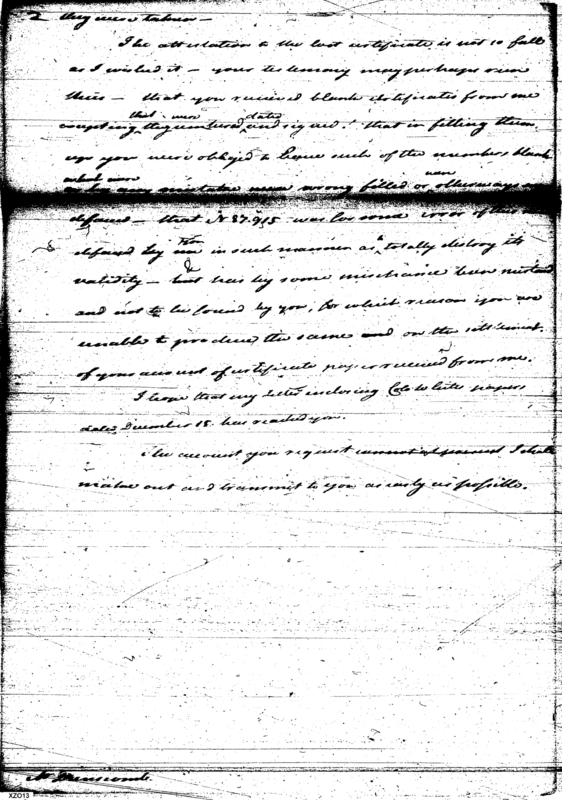 they were taken —
The attestation to the lost certificate is not so full
as I wished it — your testimony may perhaps run
thus — that you received blank certificates from me
excepting that were numbered, dated and signed. that in filling them
up you were obliged to leave such of the numbers blank
which were wrong filled or otherways
defaced — that N 87.915 was for some error
defaced by in such manner as totally destroy its
validity — but has by some mischance been
and not to be found by you, for which reason you are
unable to produce the same and on the settlement
of your account of certificate paper received from me.
I hope that my Letter enclosing Colo White papers
dated December 15. has reached you.
The account you request I shall
make out and transmit to you as early as possible.
Mr Dunscomb.
XZO13